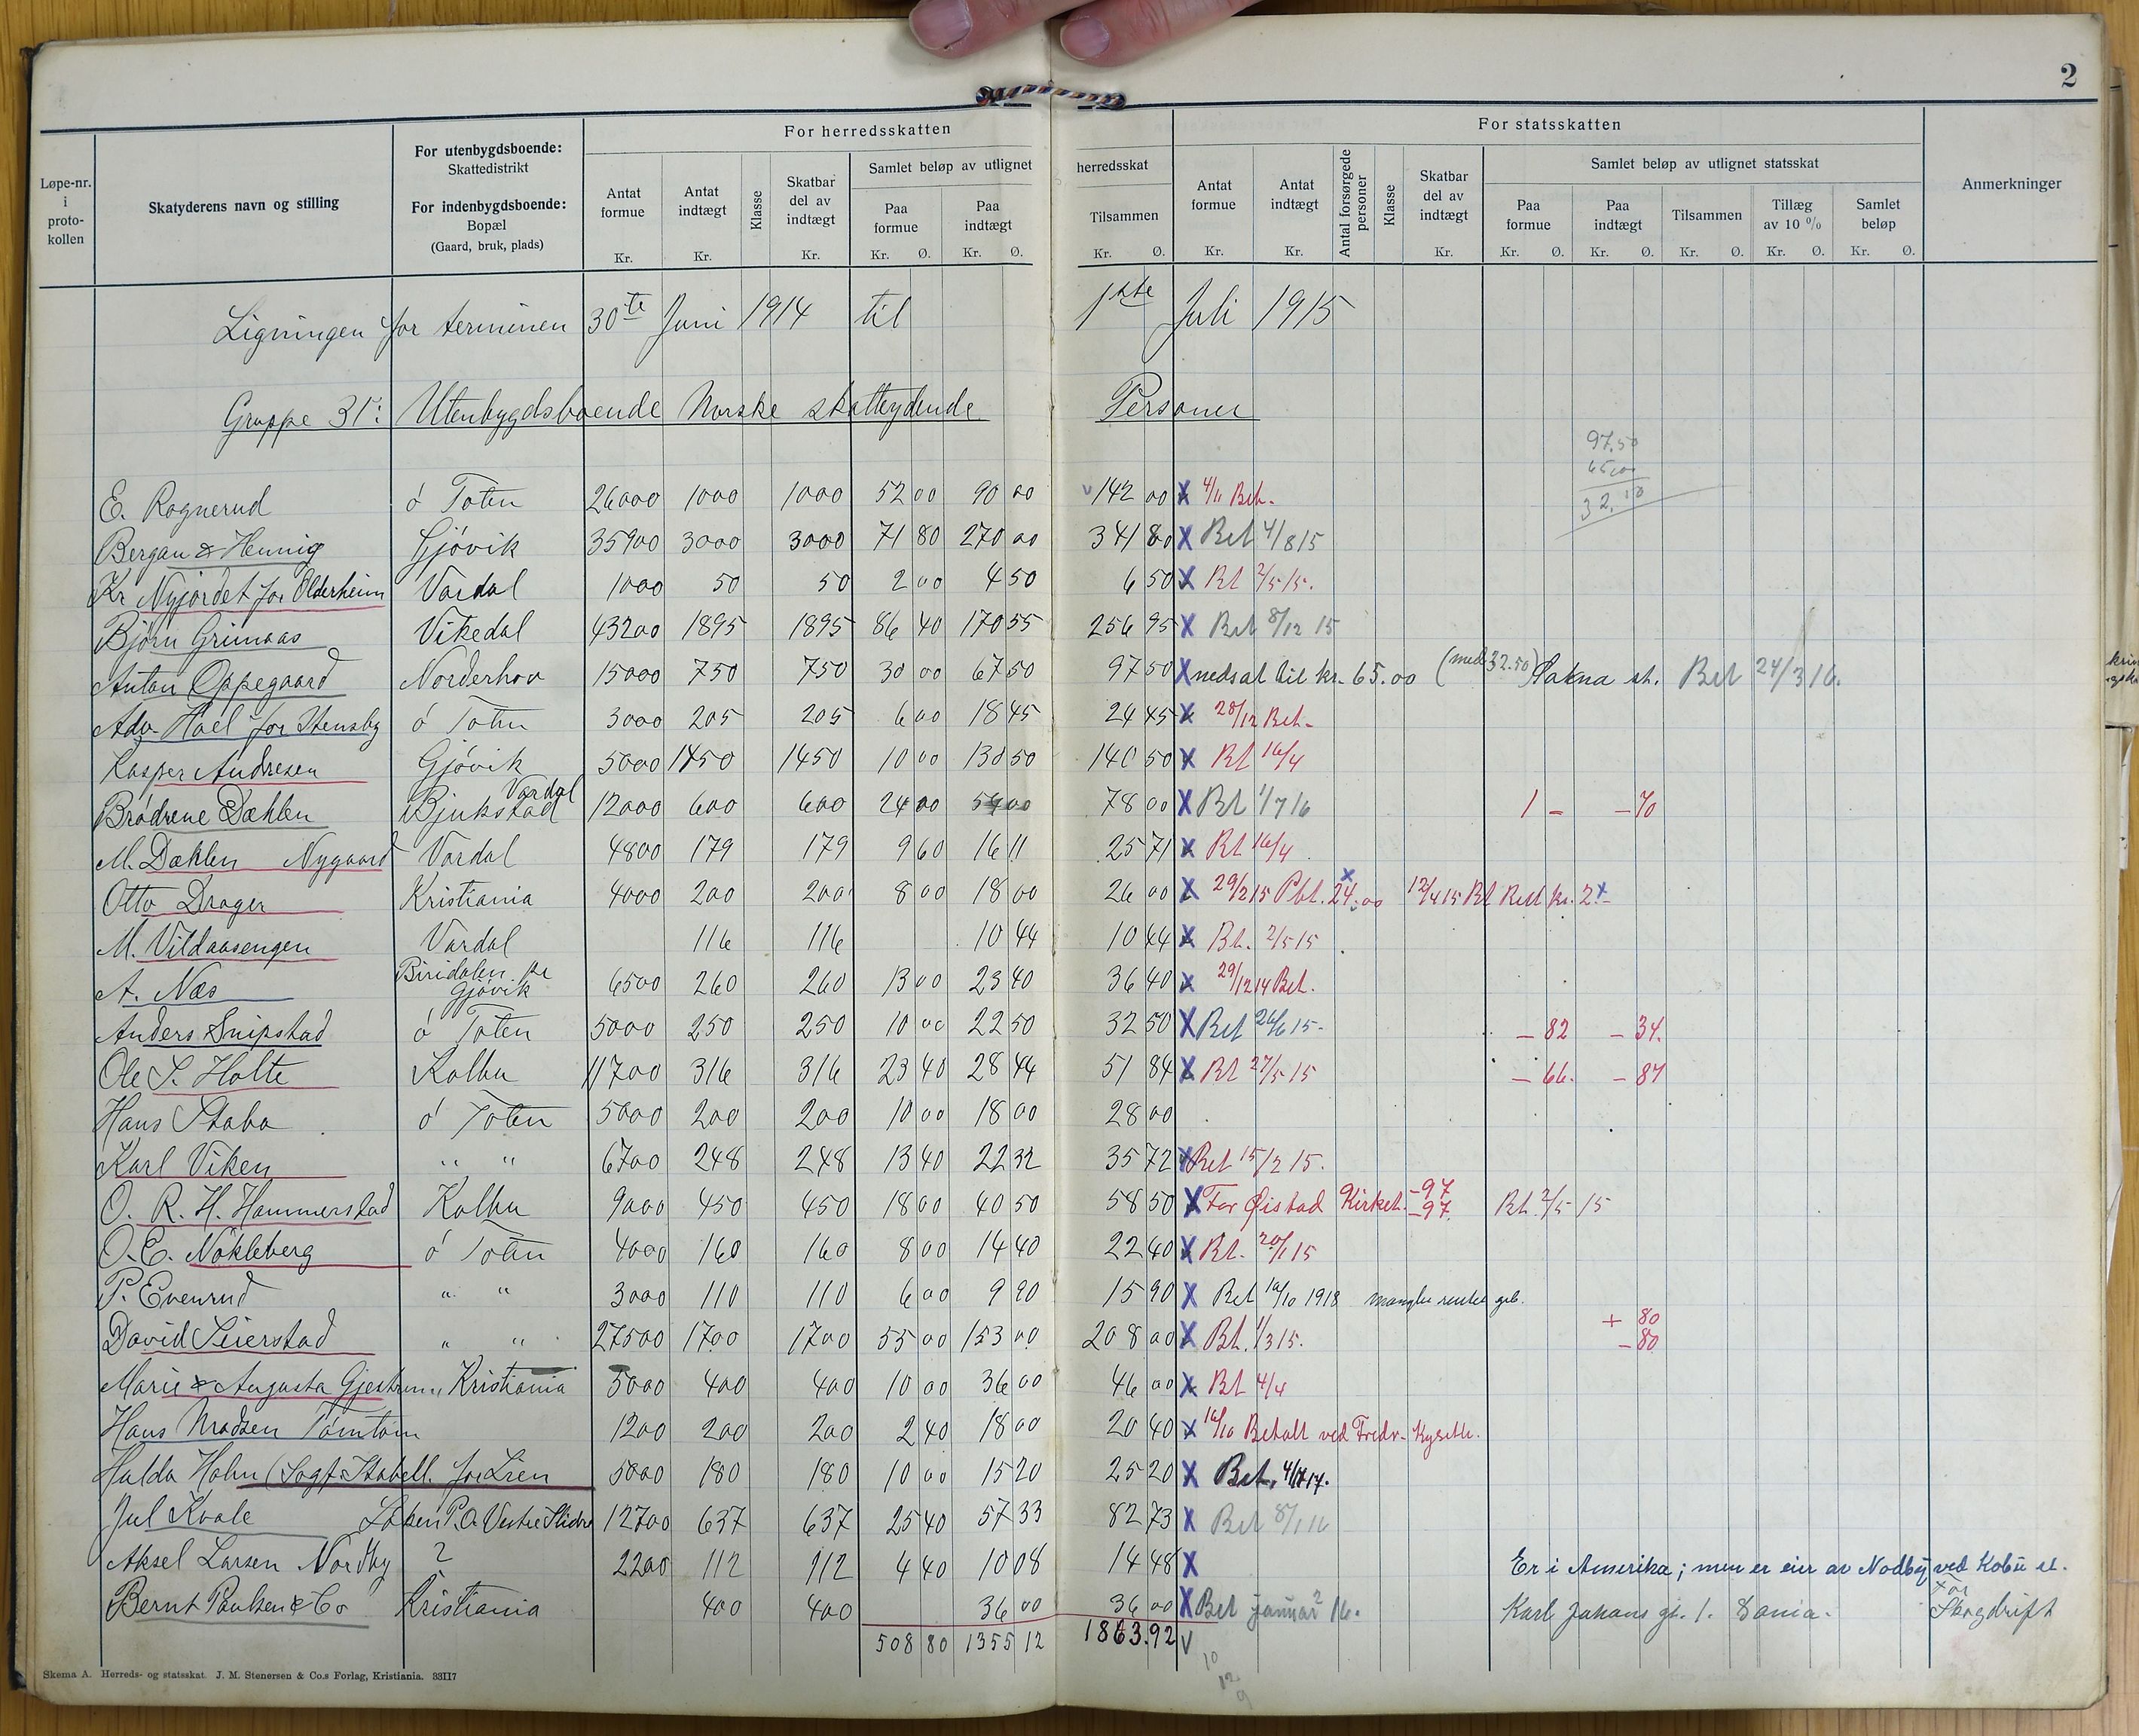 2
Løpe-nr. i proto-kollen
Skatyderens navn og stilling
For utenbygdsboende: Skattedistrikt
For indenbygdsboende: Bopæl (Gaard, bruk, plads)
For herredsskatten
Antat formue Kr.
Antat indtægt Kr.
Klasse
Skatbar del av indtægt Kr.
Samlet beløp av utlignet herredsskat
Paa formue Kr. Ø.
Paa indtægt Kr. Ø.
Tilsammen Kr. Ø.
For statsskatten
Antat formue Kr.
Antat indtægt Kr.
Antal forsørgede personer
Klasse
Skatbar del av indtægt Kr.
Samlet beløp av utlignet statsskat
Paa formue Kr. Ø.
Paa indtægt Kr. Ø.
Tilsammen Kr. Ø.
Tillæg av 10 % Kr. Ø.
Samlet beløp Kr. Ø.
Anmerkninger
Ligningen for terminen 30te Juni 1914 til 1ste Juli 1915
Gruppe 31: Utenbygdsboende Norske skatteydende Personer
97.50
65.00
32.50
E. Rognerud ö Toten 26000 1000 1000 52 00 90 00 142 00 X 4/11 Bet.
Bergan & Hennig Gjövik 35900 3000 3000 71 80 270 00 341 80 X Bet 4/8 15
Kr Nyjordet for Olderheim Vardal 1000 50 50 2 00 4 50 6 50 X Bt 2/5 15.
Björn Grimaas Vikedal 43200 1895 1895 86 40 170 55 256 95 X Bet 8/12 15
Anton Oppegaard Norderhov 15000 750 750 30 00 67 50 97 50 X nedsat til kr. 65.00 (med 32.50) st. Bet 24/3 16.
Adv. Hoel for Stensby ö Toten 3000 205 205 6 00 18 45 24 45 X 28/12 Bet.
Kasper Andresen Gjövik 5000 1450 1450 10 00 130 50 140 50 X Bt 16/4
Brödrene Dæhlen Bjukstad Vardal 12000 600 600 24 00 54 00 78 00 X Bt 1/7 16 1 – – 70
M. Dæhlen Nygaard Vardal 4800 179 179 9 60 16 11 25 71 X Bt 16/4
Otto Drager Kristiania 4000 200 200 8 00 18 00 26 00 X 29/2 15 Pbt. 24.00 12/4 15 Bt Rest kr. 2
M. Vildaasengen Vardal 116 116 10 44 10 44 X Bt. 2/5 15
A. Næs Biridalen pr Gjövik 6500 260 260 13 00 23 40 36 40 X 29/12 14 Bet.
Anders Snipstad ö Toten 5000 250 250 10 00 22 50 32 50 X Bet 26/6 15 – 82 – 34.
Ole S. Holte Kolbu 11700 316 316 23 40 28 44 51 84 X Bt 27/5 15 – 66. – 87
Hans Staba ö Toten 5000 200 200 10 00 18 00 28 00
Karl Viken " " 6700 248 248 13 40 22 32 35 72 X Bet 15/2 15.
O. R. H. Hammerstad Kolbu 9000 450 450 18 00 40 50 58 50 X For Øistad Kirket. –97 –97 Bt. 2/5 15
O. E. Nökleberg ö Toten 4000 160 160 8 00 14 40 22 40 X Bt. 20/1 15
P. Evenrud " " 3000 110 110 6 00 9 90 15 90 X Bet 10/10 1918 mangler renter geb.
David Seierstad " " 27500 1700 1700 55 00 153 00 208 00 X Bt. 1/3 15. + 80 – 80
Marie & Augusta Gjestrum, Kristiania 5000 400 400 10 00 36 00 46 00 X Bt 4/4
Hans Madsen Tömtom 1200 200 200 2 40 18 00 20 40 X 16/10 Betalt ved Fredr. Kyseth.
Hulda Hohn (Sogf. Stabell for Lien 5000 180 180 10 00 15 20 25 20 X Bet.
Jul Kvale Löken P.O. Vestre Slidre 12700 637 637 25 40 57 33 82 73 X Bet 8/1 16
Aksel Larsen Nordby ? 2200 112 112 4 40 10 08 14 48 X Er i Amerika; men er eier av Nodby ved Kolbu st.
Bernt Paulsen & Co Kristiania 400 400 36 00 36 00 X Bet januar 16. Karl Johans gt. 1. For Skogdrift
508 80 1355 12 1863.92 V
10
12
9
Skema A. Herreds- og statsskat. J. M. Stenersen & Co.s Forlag, Kristiania. 33117